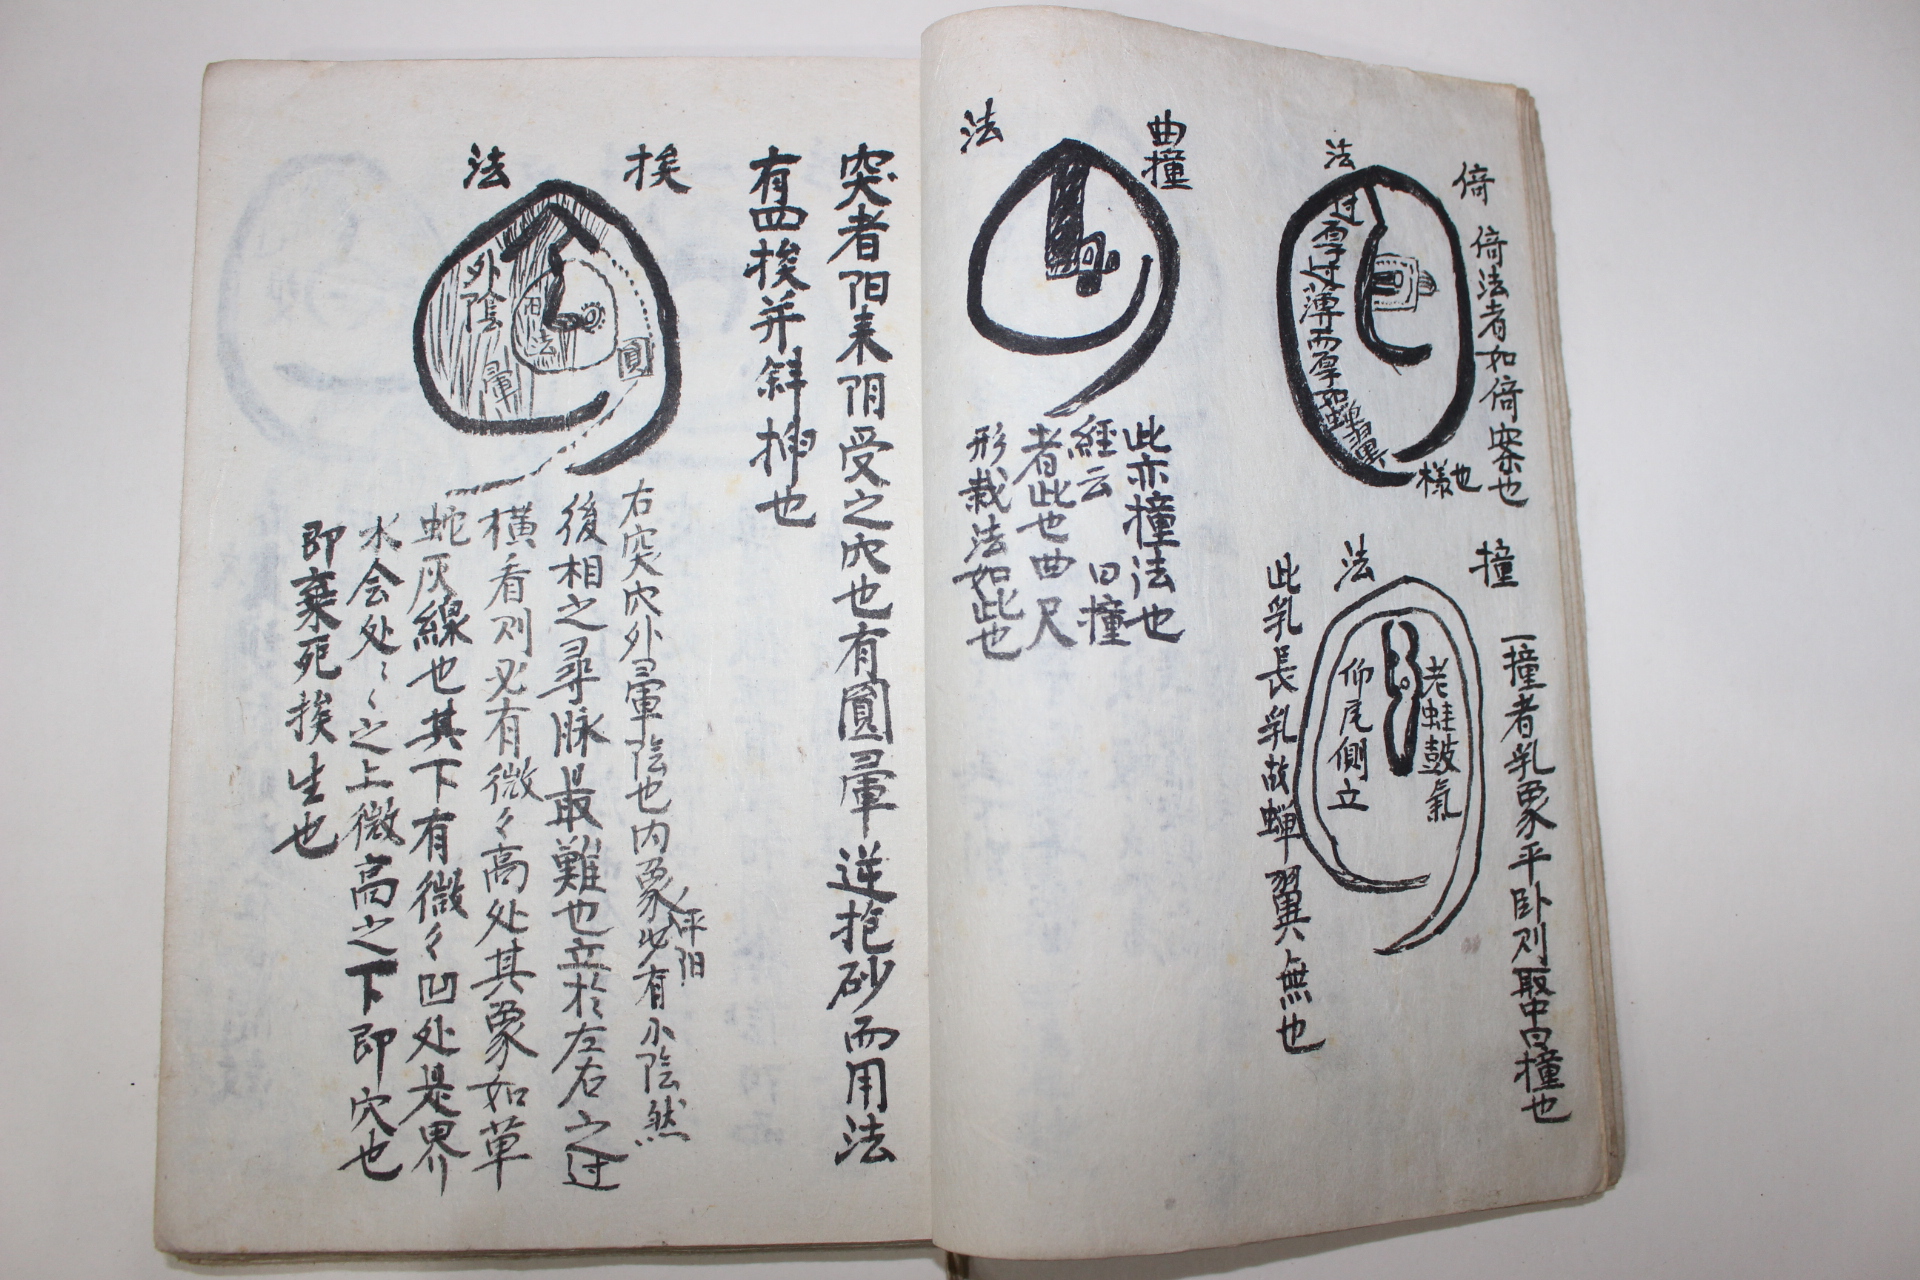 倚
法
倚法者如倚案也
樣也
过厚过薄而厚如蟬翼
撞
法
一撞者乳象平卧则取中曰撞也
老蛙鼓氣
仰尾側立
此乳長乳故蟬翼無也
曲撞
法
此亦撞法也
經云 曰撞
者此也曲尺
形裁法如此也
突者阳来阴受之穴也有圓暈逆抱砂而用法
有四挨并斜挿也
挨
法
外陰
暈
阳
法
圓
右突穴外暈陰也内象必有小陰然
平阳
後相之尋脉最難也立於左右之过
横看则必有微々高处其象如草
蛇灰線也其下有微々凹处是界
水会处々之上微高之下即穴也
即棄死挨生也